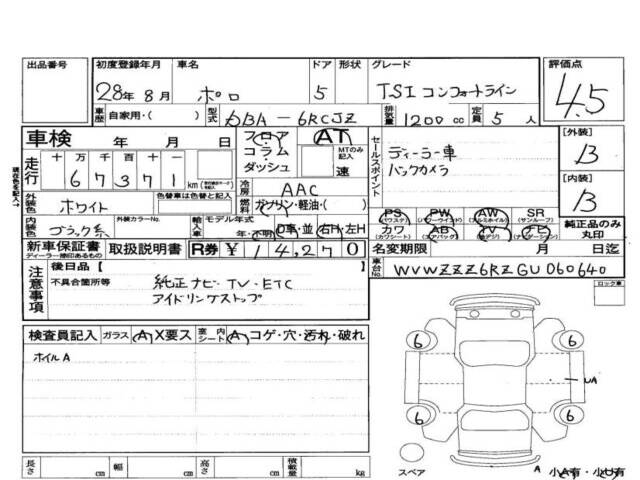 出品番号 初度登録年月 車名 ドア 形状 グレード 評価点
28年 8月 ポロ 5 TSI コンフォートライン 4.5
車歴 自家用・( ) 型式 DBA-6RCJZ 排気量 1200 cc 定員 5 人
車検 年 月 日 フロア コラム ダッシュ AT MTのみ記入 速
セールスポイント ディーラー車 バックカメラ
[外装] B
走行 十 万 千 百 十 一
67371 km
[内装] B
冷房 AAC
燃料 ガソリン・軽油・( )
外装色 ホワイト 色替車は色替と記入
PS (パワステ) PW (パワーウインド) AW (アルミホイル) SR (サンルーフ) 純正品のみ丸印
カワ (カワシート) AB (エアバック) TV (地デジ) ナビ (ナビゲーション)
内装色 ブラック系 外装カラーNo. 輸入車 モデル年式 年・不明 D車・並 右H・左H
新車保証書 ディーラー捺印あるもの 取扱説明書 R券 ¥ 14,270 名変期限 月 日迄
車台No. WVWZZZ6RZGU060640
注意事項 後日品【 】
不具合箇所等 純正ナビ・TV・ETC
アイドリングストップ
ロック車
検査員記入 ガラス A X要ス 室内シート A コゲ・穴・汚れ・破れ
ホイルA
6 6
UA
6 6
スペア A 小A有・小U有
長さ cm 幅 cm 高さ cm 積載量 kg
現在色を記入→